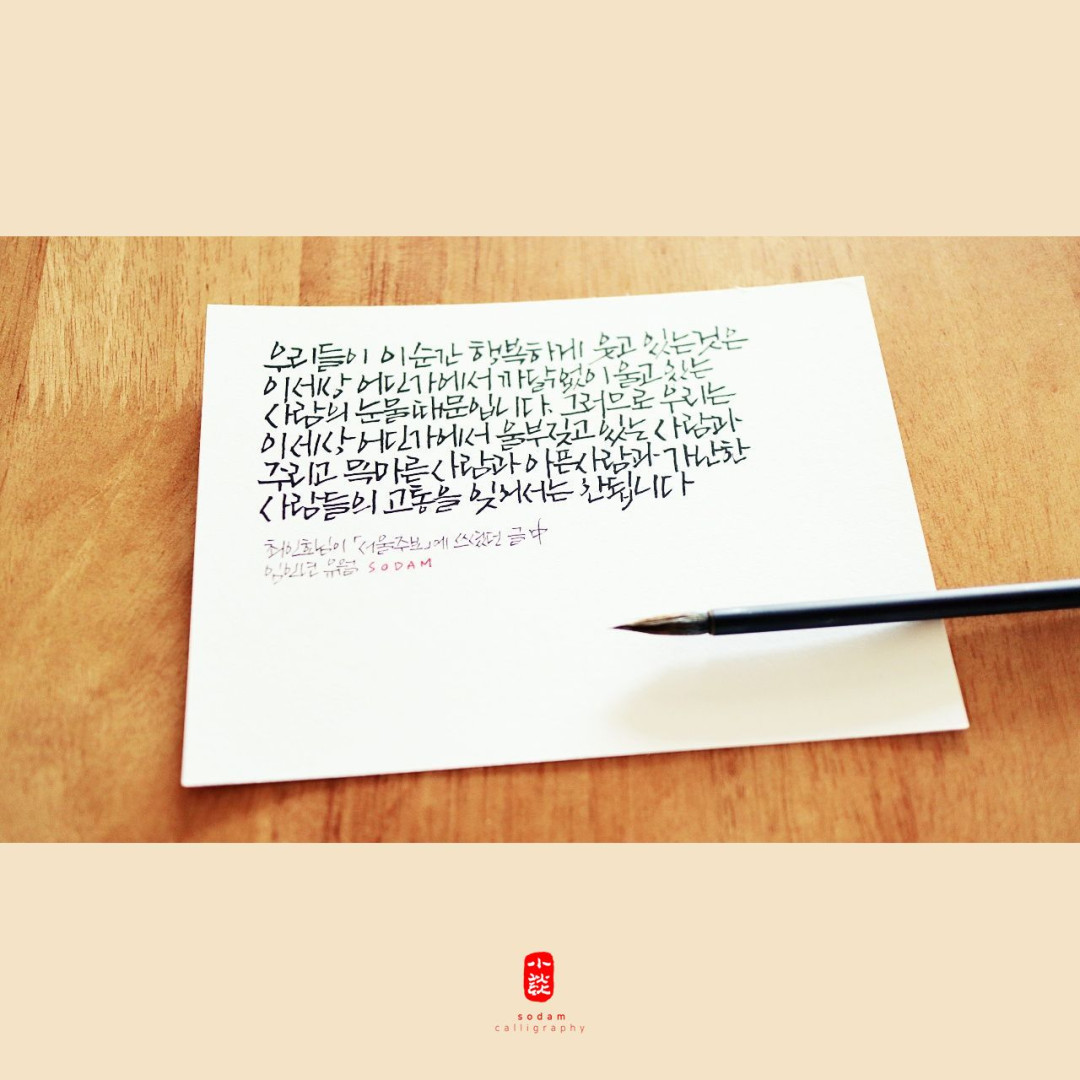 우리들이 이 순간 행복하게 웃고 있는것은
이세상 어딘가에서 까닭없이 울고 있는
사람의 눈물때문입니다. 그러므로 우리는
이세상 어딘가에서 울부짖고 있는 사람과
주리고 목마른 사람과 아픈사람과 가난한
사람들의 고통을 잊어서는 안됩니다
최인호님이 「서울주보」에 쓰셨던 글 中
임인년 유월 SODAM
小
sodam
calligraphy